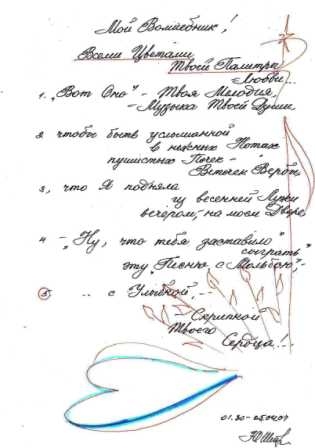 Мой Волшебник!
Всеми Цветами
Твоей Палитры
Любви...
1. „Вот Оно" - Твоя Мелодия
- Музыка Твоей Души
2. чтобы быть услышанной
в нежных Нотах
пушистых Почек -
Веточек Вербы
3, что Я подняла
из весенней Лужи
вечером, на моём Дворе
4 - „Ну, что тебя заставило
сыграть"
эту „Песню с Мольбою",
5. .. с Улыбкой, -
- Скрипкой
Твоего
Сердца!..
01.30-